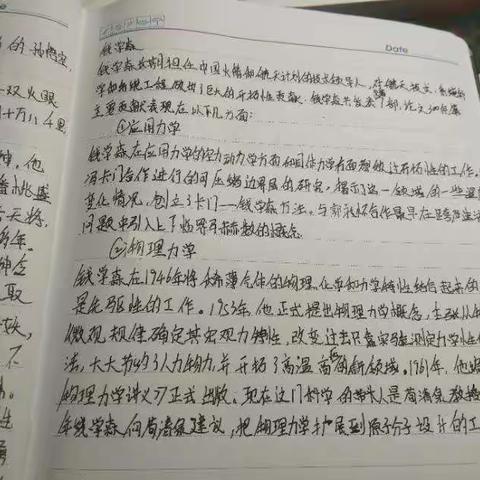 的 孙悟空,
双火眼
十万八千里
神,他
蟠桃盛
天将,
年。
神念
取
不
性
Date
钱学森
钱学森长期担任中国火箭和航天计划的技术领导人,在航天技术、系统科
学和系统工程做出巨大的开拓性贡献。钱学森共发表专著7部,论文300余篇
主要贡献表现在以下几方面:
①应用力学
钱学森在应用力学的空力动力学方面和固体力学方面都做过开拓性的工作。
冯卡门合作进行的可压缩边界层的研究,揭示了这一领域的一些温
变化情况,创立了卡门—钱学森方法。与郭永怀合作最早在跨声速流
问题中引入上下临界马赫数的概念
②物理力学
钱学森在1946年将稀薄气体的物理、化学和力学特性结合起来的
是先驱性的工作。1953年,他正式提出物理力学概念,主张从
微观规律确定其宏观力学特性,改变过去只靠实验测定力学性
法,大大节约了人力物力,并开拓了高温高压的新领域。1961年,他
物理力学讲义》正式出版。现在这门科学的带头人是苟清泉教授
年钱学森向苟清泉建议,把物理力学扩展到原子分子设计的工